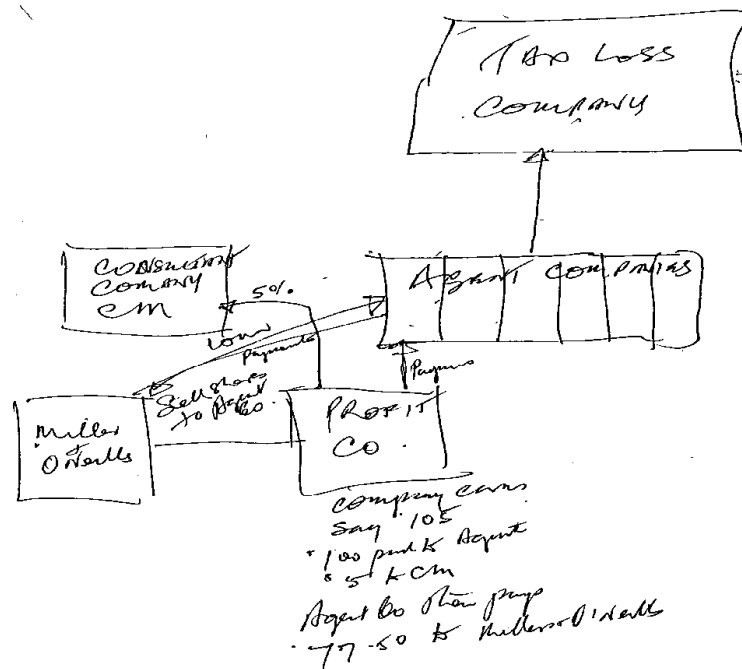 TAX LOSS
COMPANY
CONSULTANT
COMPANY
CM
5%
AGENT COMPANIES
Loan
Payments
Payms
Sell shares
to Agent
Co.
Miller
&
O'Neills
PROFIT
CO.
Company earns
say 105
• 100 paid to Agent
• 5 to CM
Agent Co then pays
• 77-50 to Millers O'Neills